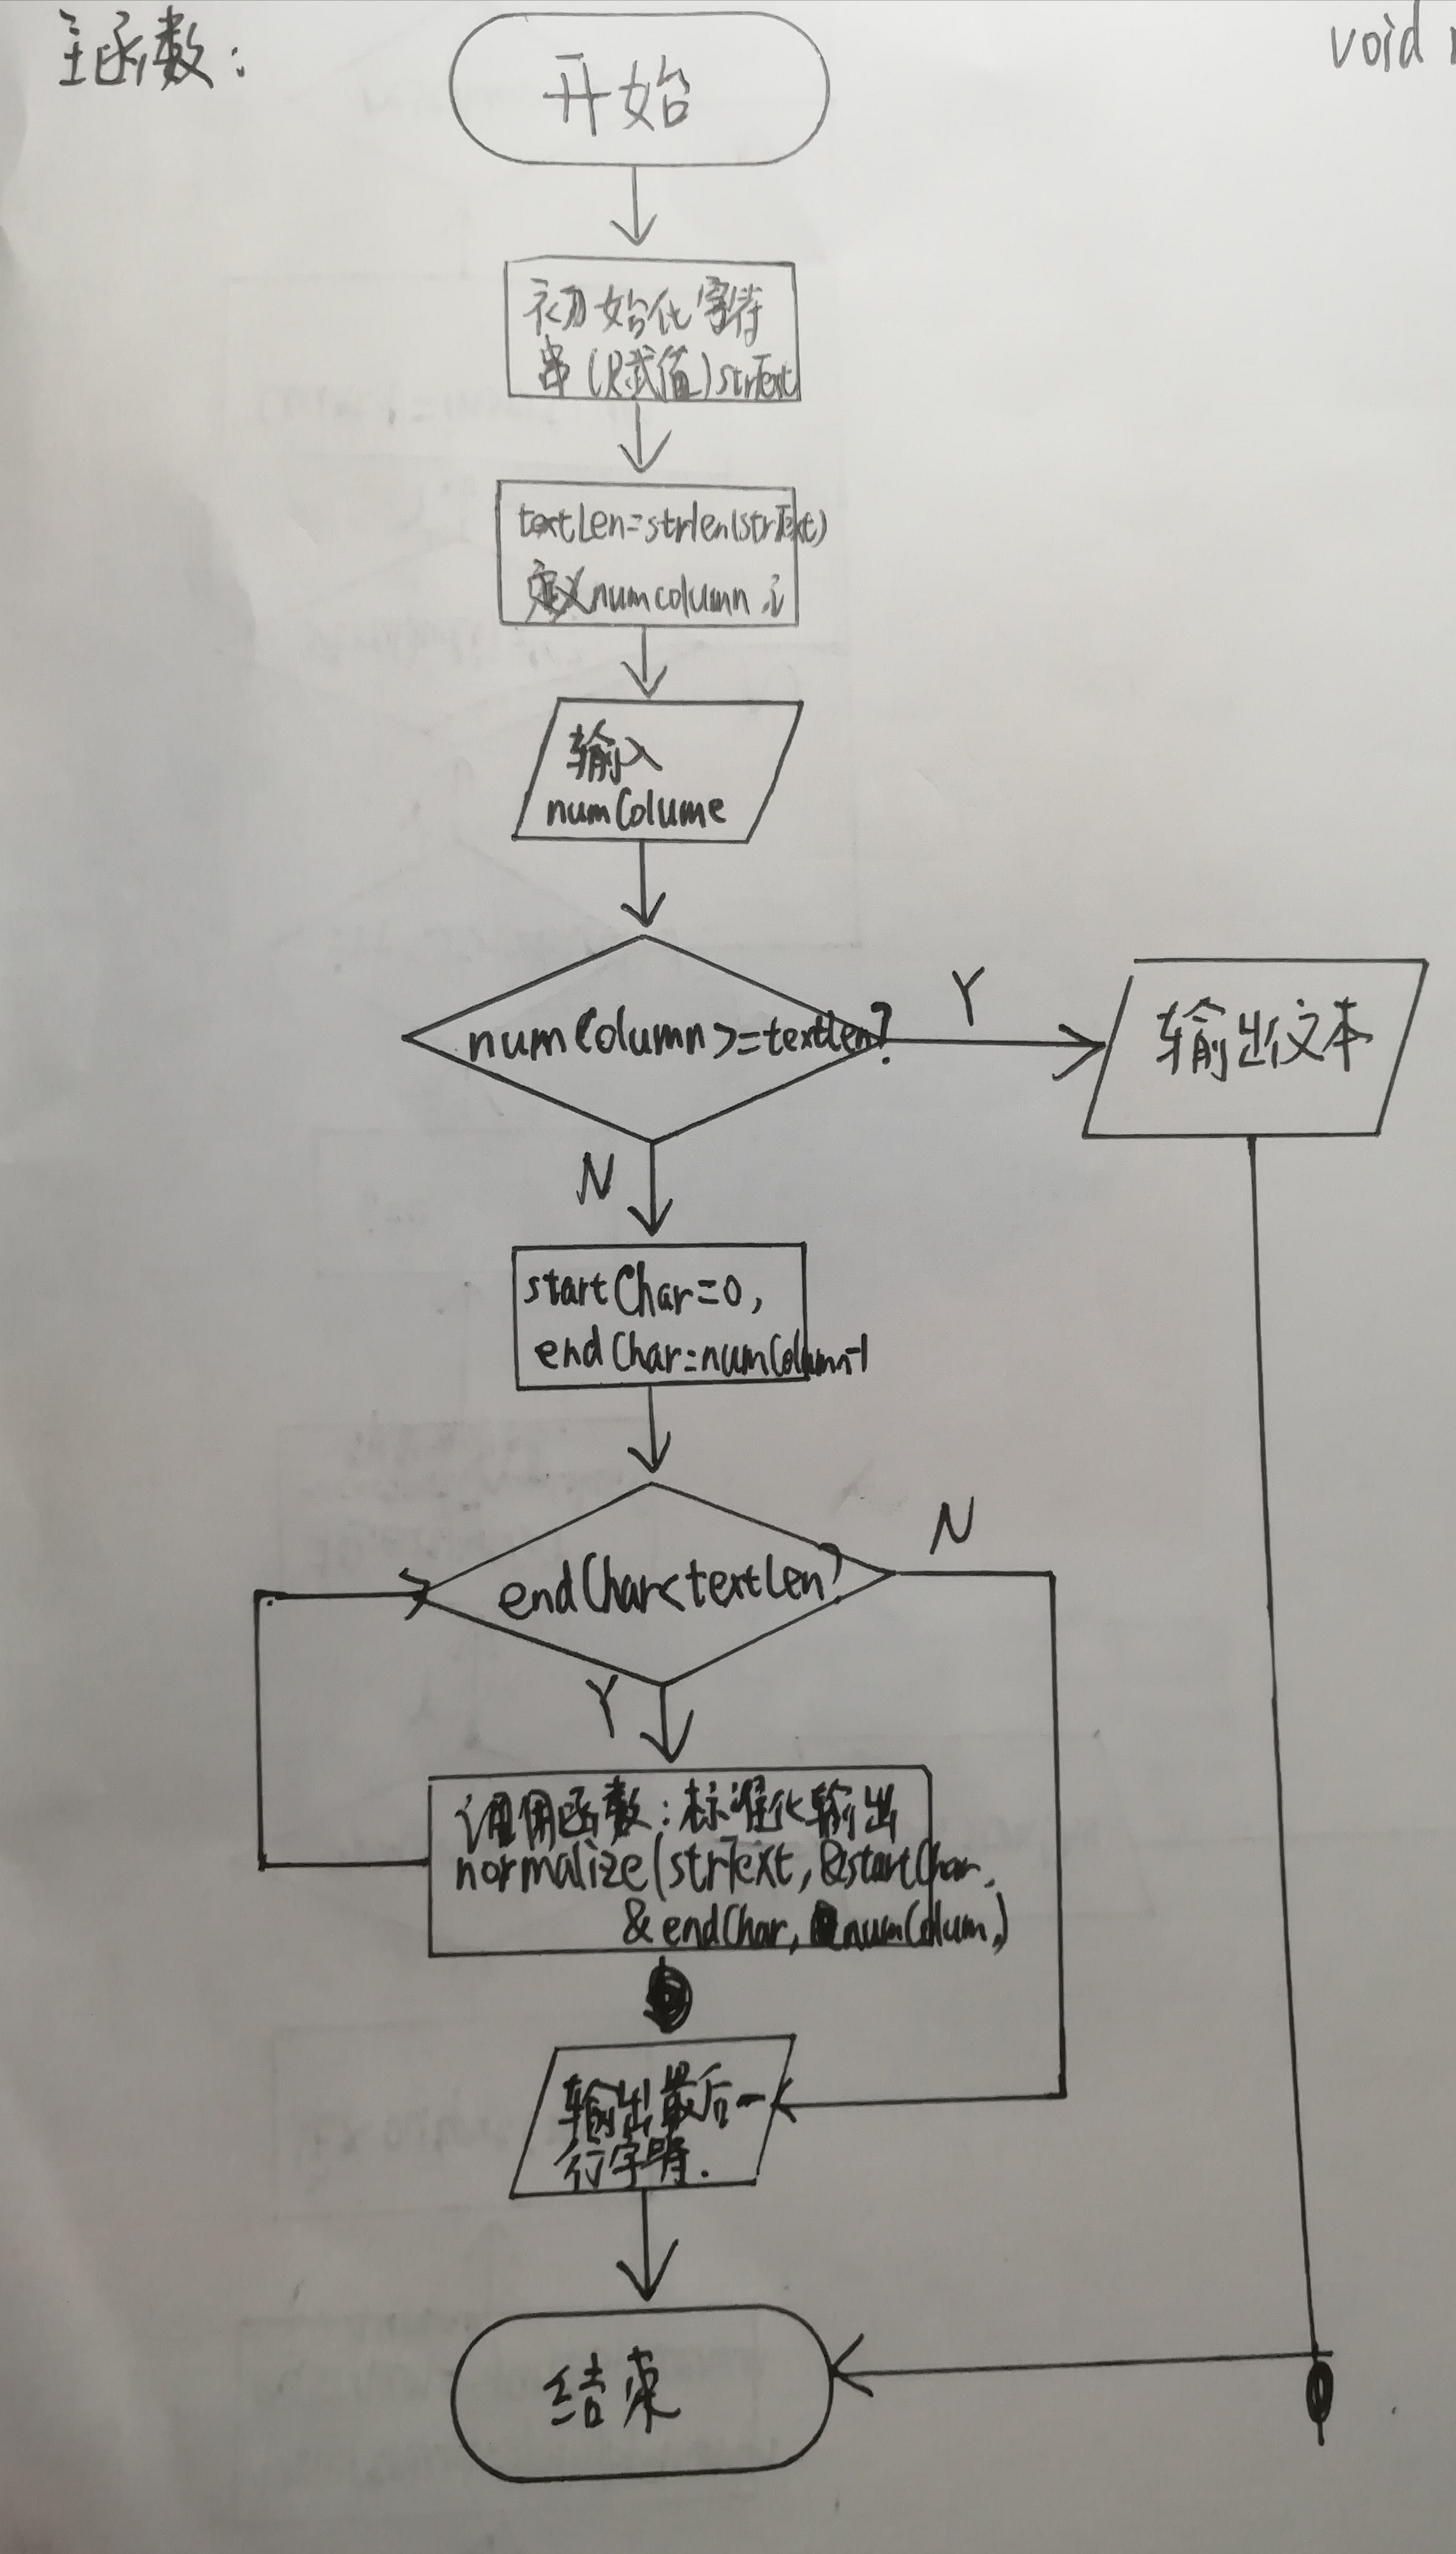 主函数:
void
开始
初始化字符
串(赋值)strText
textLen=strlen(strText)
定义numcolumn,i
输入
numColume
numColumn>=textLen?
Y
输出文本
N
startChar=0,
endChar=numColumn-1
endChar<textLen?
N
Y
调用函数:标准化输出
normalize(strText,&startChar,
&endChar, numColum,)
输出最后一
行字符.
结束